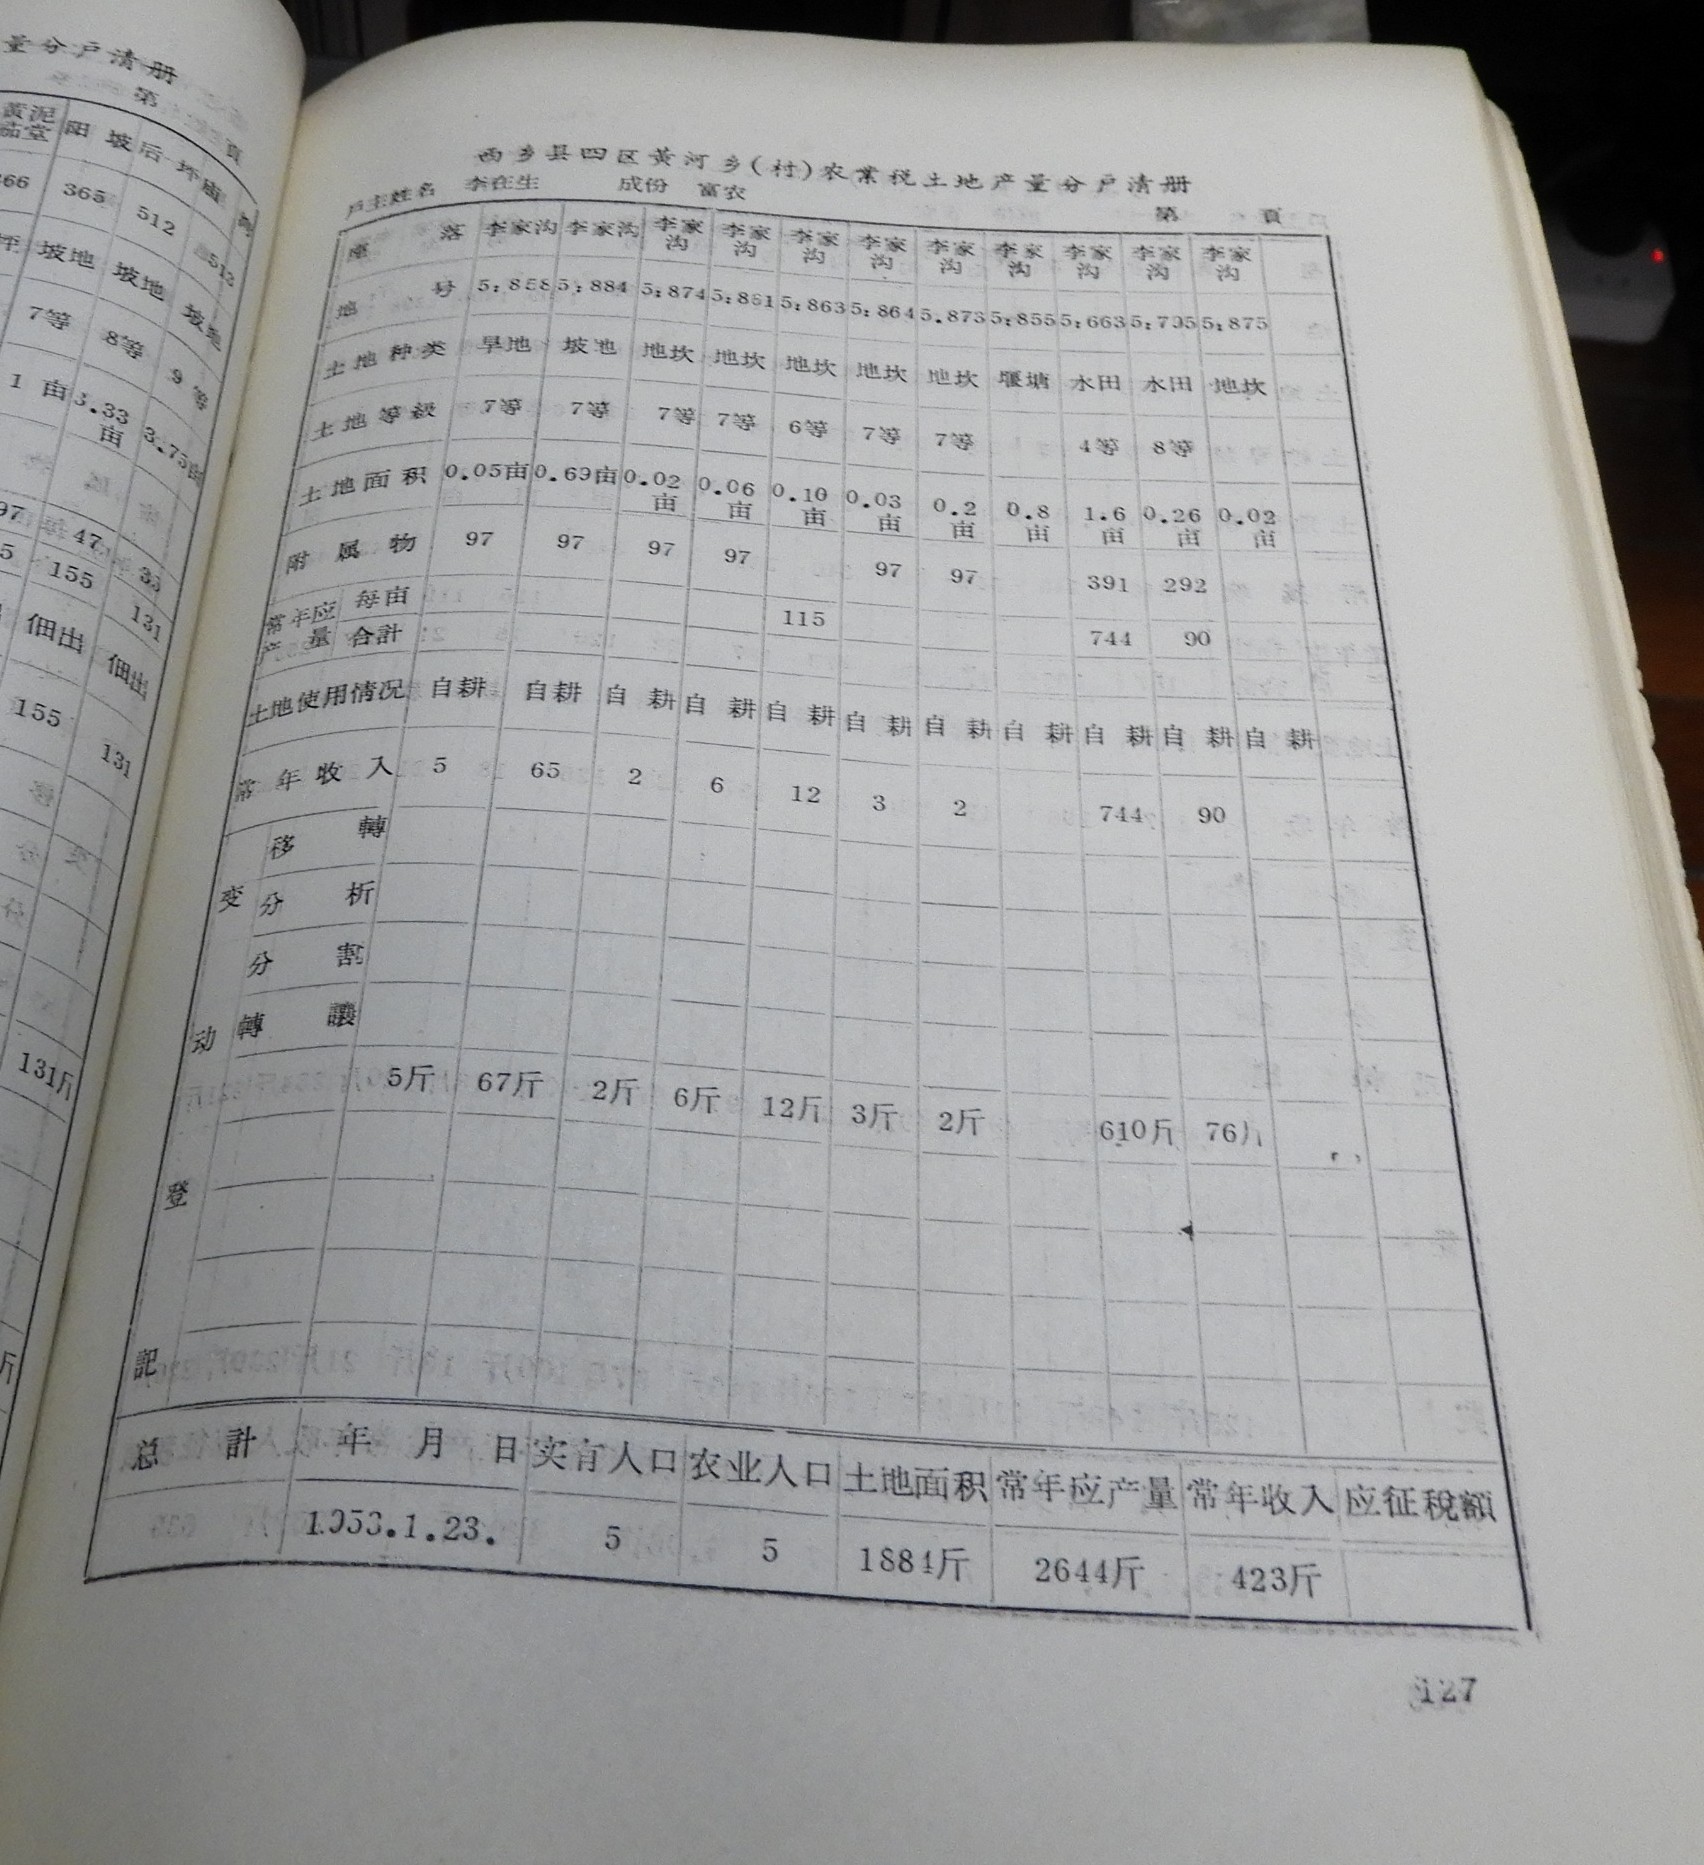 量分户清册
第 頁
黄泥 阳坡 后坪庙
茄堂
366 365 512 513
坪 坡地 坡地 坡地
7等 8等 9等
1亩 3.75亩
97 47 35
5 155 131
佃出 佃出
155 131
131斤
斤
西乡县四区黄河乡(村)农業税土地产量分户清册
戸主姓名 李在生 成份 富农 第 頁
座落 李家沟 李家沟 李家沟 李家沟 李家沟 李家沟 李家沟 李家沟 李家沟 李家沟 李家沟
地号 5:858 5:884 5:874 5:861 5:863 5:864 5.873 5:855 5:663 5:735 5:875
土地种类 旱地 坡地 地坎 地坎 地坎 地坎 地坎 堰塘 水田 水田 地坎
土地等級 7等 7等 7等 7等 6等 7等 7等 4等 8等
土地面积 0.05亩 0.69亩 0.02亩 0.06亩 0.10亩 0.03亩 0.2亩 0.8亩 1.6亩 0.26亩 0.02亩
附属物 97 97 97 97 97 97 391 292
常年应产量 每亩 115
合計 744 90
土地使用情况 自耕 自耕 自耕 自耕 自耕 自耕 自耕 自耕 自耕 自耕 自耕
常年收入 5 65 2 6 12 3 2 744 90
变动登記
移轉
分析
分割
轉讓
5斤 67斤 2斤 6斤 12斤 3斤 2斤 610斤 76斤
总計 年月日 实有人口 农业人口 土地面积 常年应产量 常年收入 应征税額
1953.1.23. 5 5 1884斤 2644斤 423斤
127